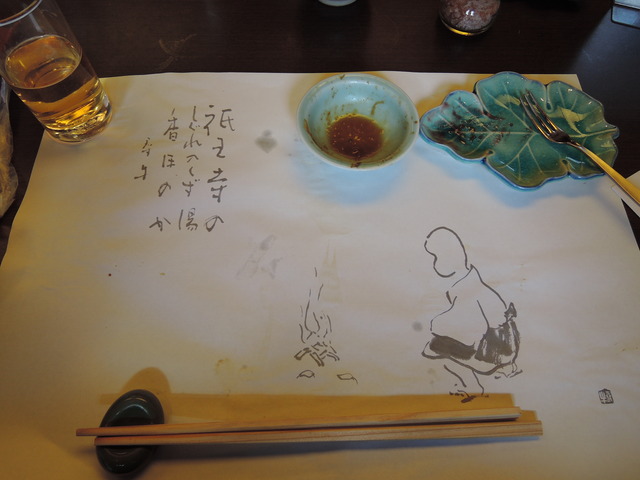 祇王寺の
しぐれのくず湯
香ほのか